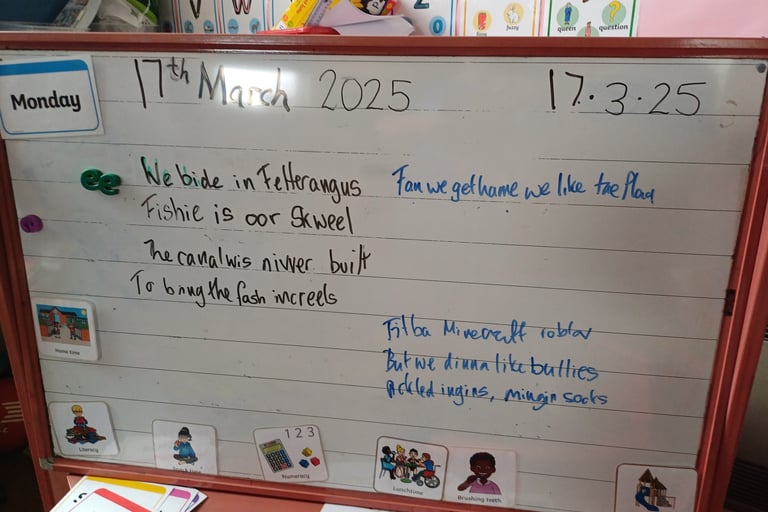 queen
question
Monday
17th March 2025
17.3.25
ee
We bide in Fetterangus
Fishie is oor Skweel
The canal wis nivver built
To bring the fash in creels
Fan we get hame we like tae play
Fitba Minecraft roblox
But we dinna like bullies
pickled ingins, mingin socks
Home time
Literacy
1 2 3
Numeracy
Lunchtime
Brushing teeth